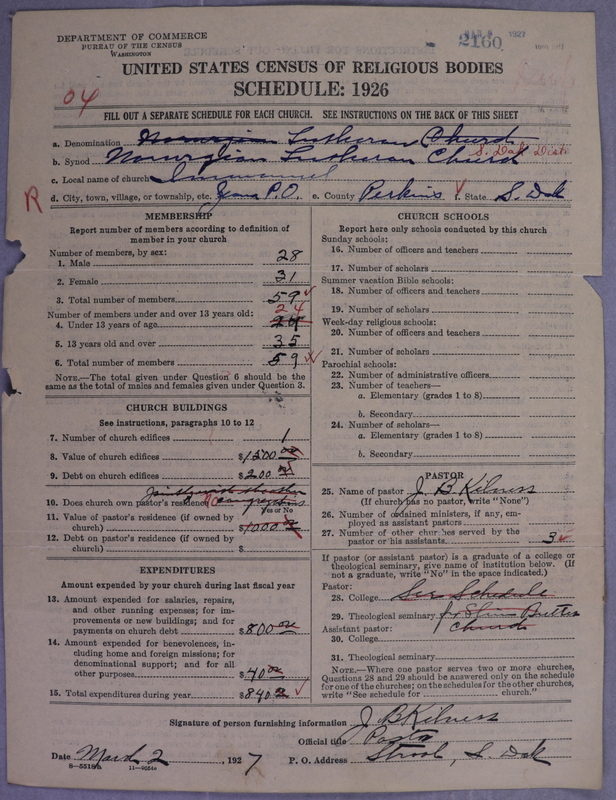 DEPARTMENT OF COMMERCE
BUREAU OF THE CENSUS
WASHINGTON
MAR 8 1927
2160
UNITED STATES CENSUS OF RELIGIOUS BODIES
SCHEDULE: 1926
04
FILL OUT A SEPARATE SCHEDULE FOR EACH CHURCH. SEE INSTRUCTIONS ON THE BACK OF THIS SHEET
a. Denomination Norwegian Lutheran Church
b. Synod Norwegian Lutheran Church S. Dak. Dist.
c. Local name of church Immanuel
R d. City, town, village, or township, etc. P.O., e. County Perkins f. State S. Dak
MEMBERSHIP
Report number of members according to definition of member in your church
Number of members, by sex:
1. Male 28
2. Female 31
3. Total number of members 59
Number of members under and over 13 years old: 24
4. Under 13 years of age 24
5. 13 years old and over 35
6. Total number of members 59
NOTE.—The total given under Question 6 should be the same as the total of males and females given under Question 3.
CHURCH BUILDINGS
See instructions, paragraphs 10 to 12
7. Number of church edifices 1
8. Value of church edifices $1500.00
9. Debt on church edifices $200.00
10. Does church own pastor's residence? No
Yes or No
11. Value of pastor's residence (if owned by church) $1000
12. Debt on pastor's residence (if owned by church) $
EXPENDITURES
Amount expended by your church during last fiscal year
13. Amount expended for salaries, repairs, and other running expenses; for improvements or new buildings; and for payments on church debt $800.00
14. Amount expended for benevolences, including home and foreign missions; for denominational support; and for all other purposes $40.00
15. Total expenditures during year $840
CHURCH SCHOOLS
Report here only schools conducted by this church
Sunday schools:
16. Number of officers and teachers
17. Number of scholars
Summer vacation Bible schools:
18. Number of officers and teachers
19. Number of scholars
Week-day religious schools:
20. Number of officers and teachers
21. Number of scholars
Parochial schools:
22. Number of administrative officers
23. Number of teachers—
a. Elementary (grades 1 to 8)
b. Secondary
24. Number of scholars—
a. Elementary (grades 1 to 8)
b. Secondary
PASTOR
25. Name of pastor J. B. Kilness
(If church has no pastor, write "None")
26. Number of ordained ministers, if any, employed as assistant pastors
27. Number of other churches served by the pastor or his assistants 3
If pastor (or assistant pastor) is a graduate of a college or theological seminary, give name of institution below. (If not a graduate, write "No" in the space indicated.)
Pastor:
28. College See Schedule
29. Theological seminary for Slim Buttes
Assistant pastor: Church
30. College
31. Theological seminary
NOTE.—Where one pastor serves two or more churches, Questions 28 and 29 should be answered only on the schedule for one of the churches; on the schedules for the other churches, write "See schedule for church."
Signature of person furnishing information J. B Kilness
Official title Pastor
Date March 2, 1927 P. O. Address Strool, S. Dak
8—5518a 11—9554a